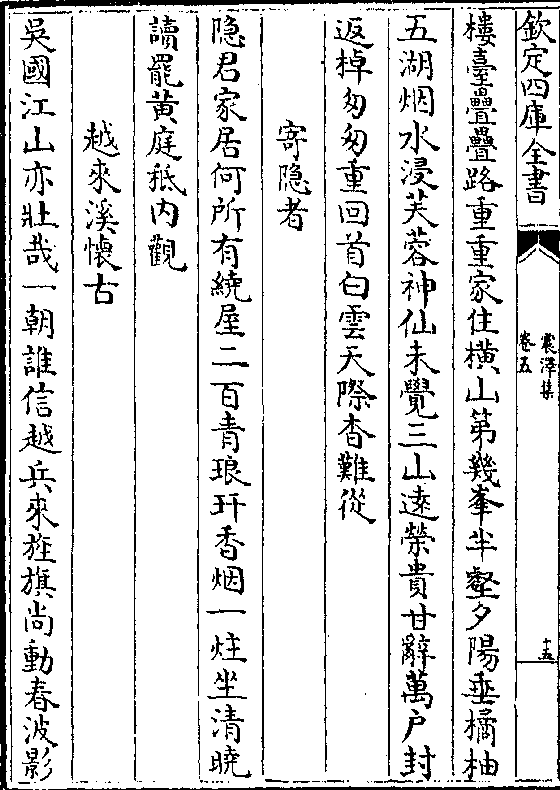 欽定四庫全書
震澤集
卷五
十五
樓臺疊疊路重重家住橫山第幾峯半壑夕陽垂橘柚
五湖烟水浸芙蓉神仙未覺三山遠榮貴甘辭萬户封
返棹匆匆重回首白雲天際杳難從
寄隐者
隐君家居何所有繞屋二百青琅玕香烟一炷坐清曉
讀罷黄庭秪内觀
越來溪懷古
吳國江山亦壯哉一朝誰信越兵來旌旗尚動春波影